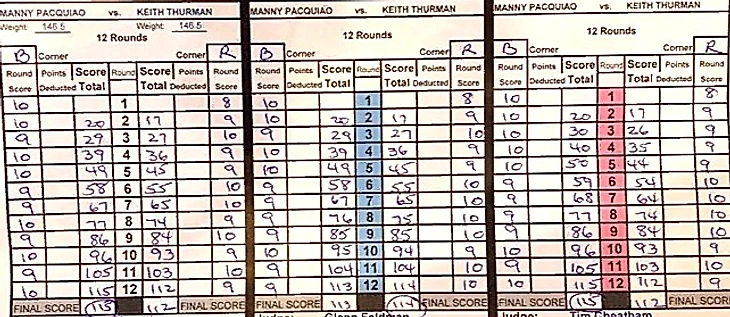 MANNY PACQUIAO vs. KEITH THURMAN
Weight: 146.5 Weight: 146.5
12 Rounds
B Corner Corner R
Round Points Score Round Score Points Round
Score Deducted Total Total Deducted Score
10 1 8
10 20 2 17 9
9 29 3 27 10
10 39 4 36 9
10 49 5 45 9
9 58 6 55 10
9 67 7 65 10
10 77 8 74 9
9 86 9 84 10
10 96 10 93 9
9 105 11 103 10
10 115 12 112 9
FINAL SCORE 115 112 FINAL SCORE
MANNY PACQUIAO vs. KEITH THURMAN
12 Rounds
B Corner Corner R
Round Points Score Round Score Points Round
Score Deducted Total Total Deducted Score
10 1 8
10 20 2 17 9
9 29 3 27 10
10 39 4 36 9
10 49 5 45 9
9 58 6 55 10
9 67 7 65 10
9 76 8 75 10
9 85 9 85 10
10 95 10 94 9
9 104 11 104 10
9 113 12 114 10
FINAL SCORE 113 114 FINAL SCORE
Judge: Glenn Feldman
MANNY PACQUIAO vs. KEITH THURMAN
12 Rounds
B Corner Corner R
Round Points Score Round Score Points Round
Score Deducted Total Total Deducted Score
10 1 8
10 20 2 17 9
10 30 3 26 9
10 40 4 35 9
10 50 5 44 9
9 59 6 54 10
9 68 7 64 10
9 77 8 74 10
9 86 9 84 10
10 96 10 93 9
9 105 11 103 10
10 115 12 112 9
FINAL SCORE 115 112 FINAL SCORE
Judge: Tim Cheatham